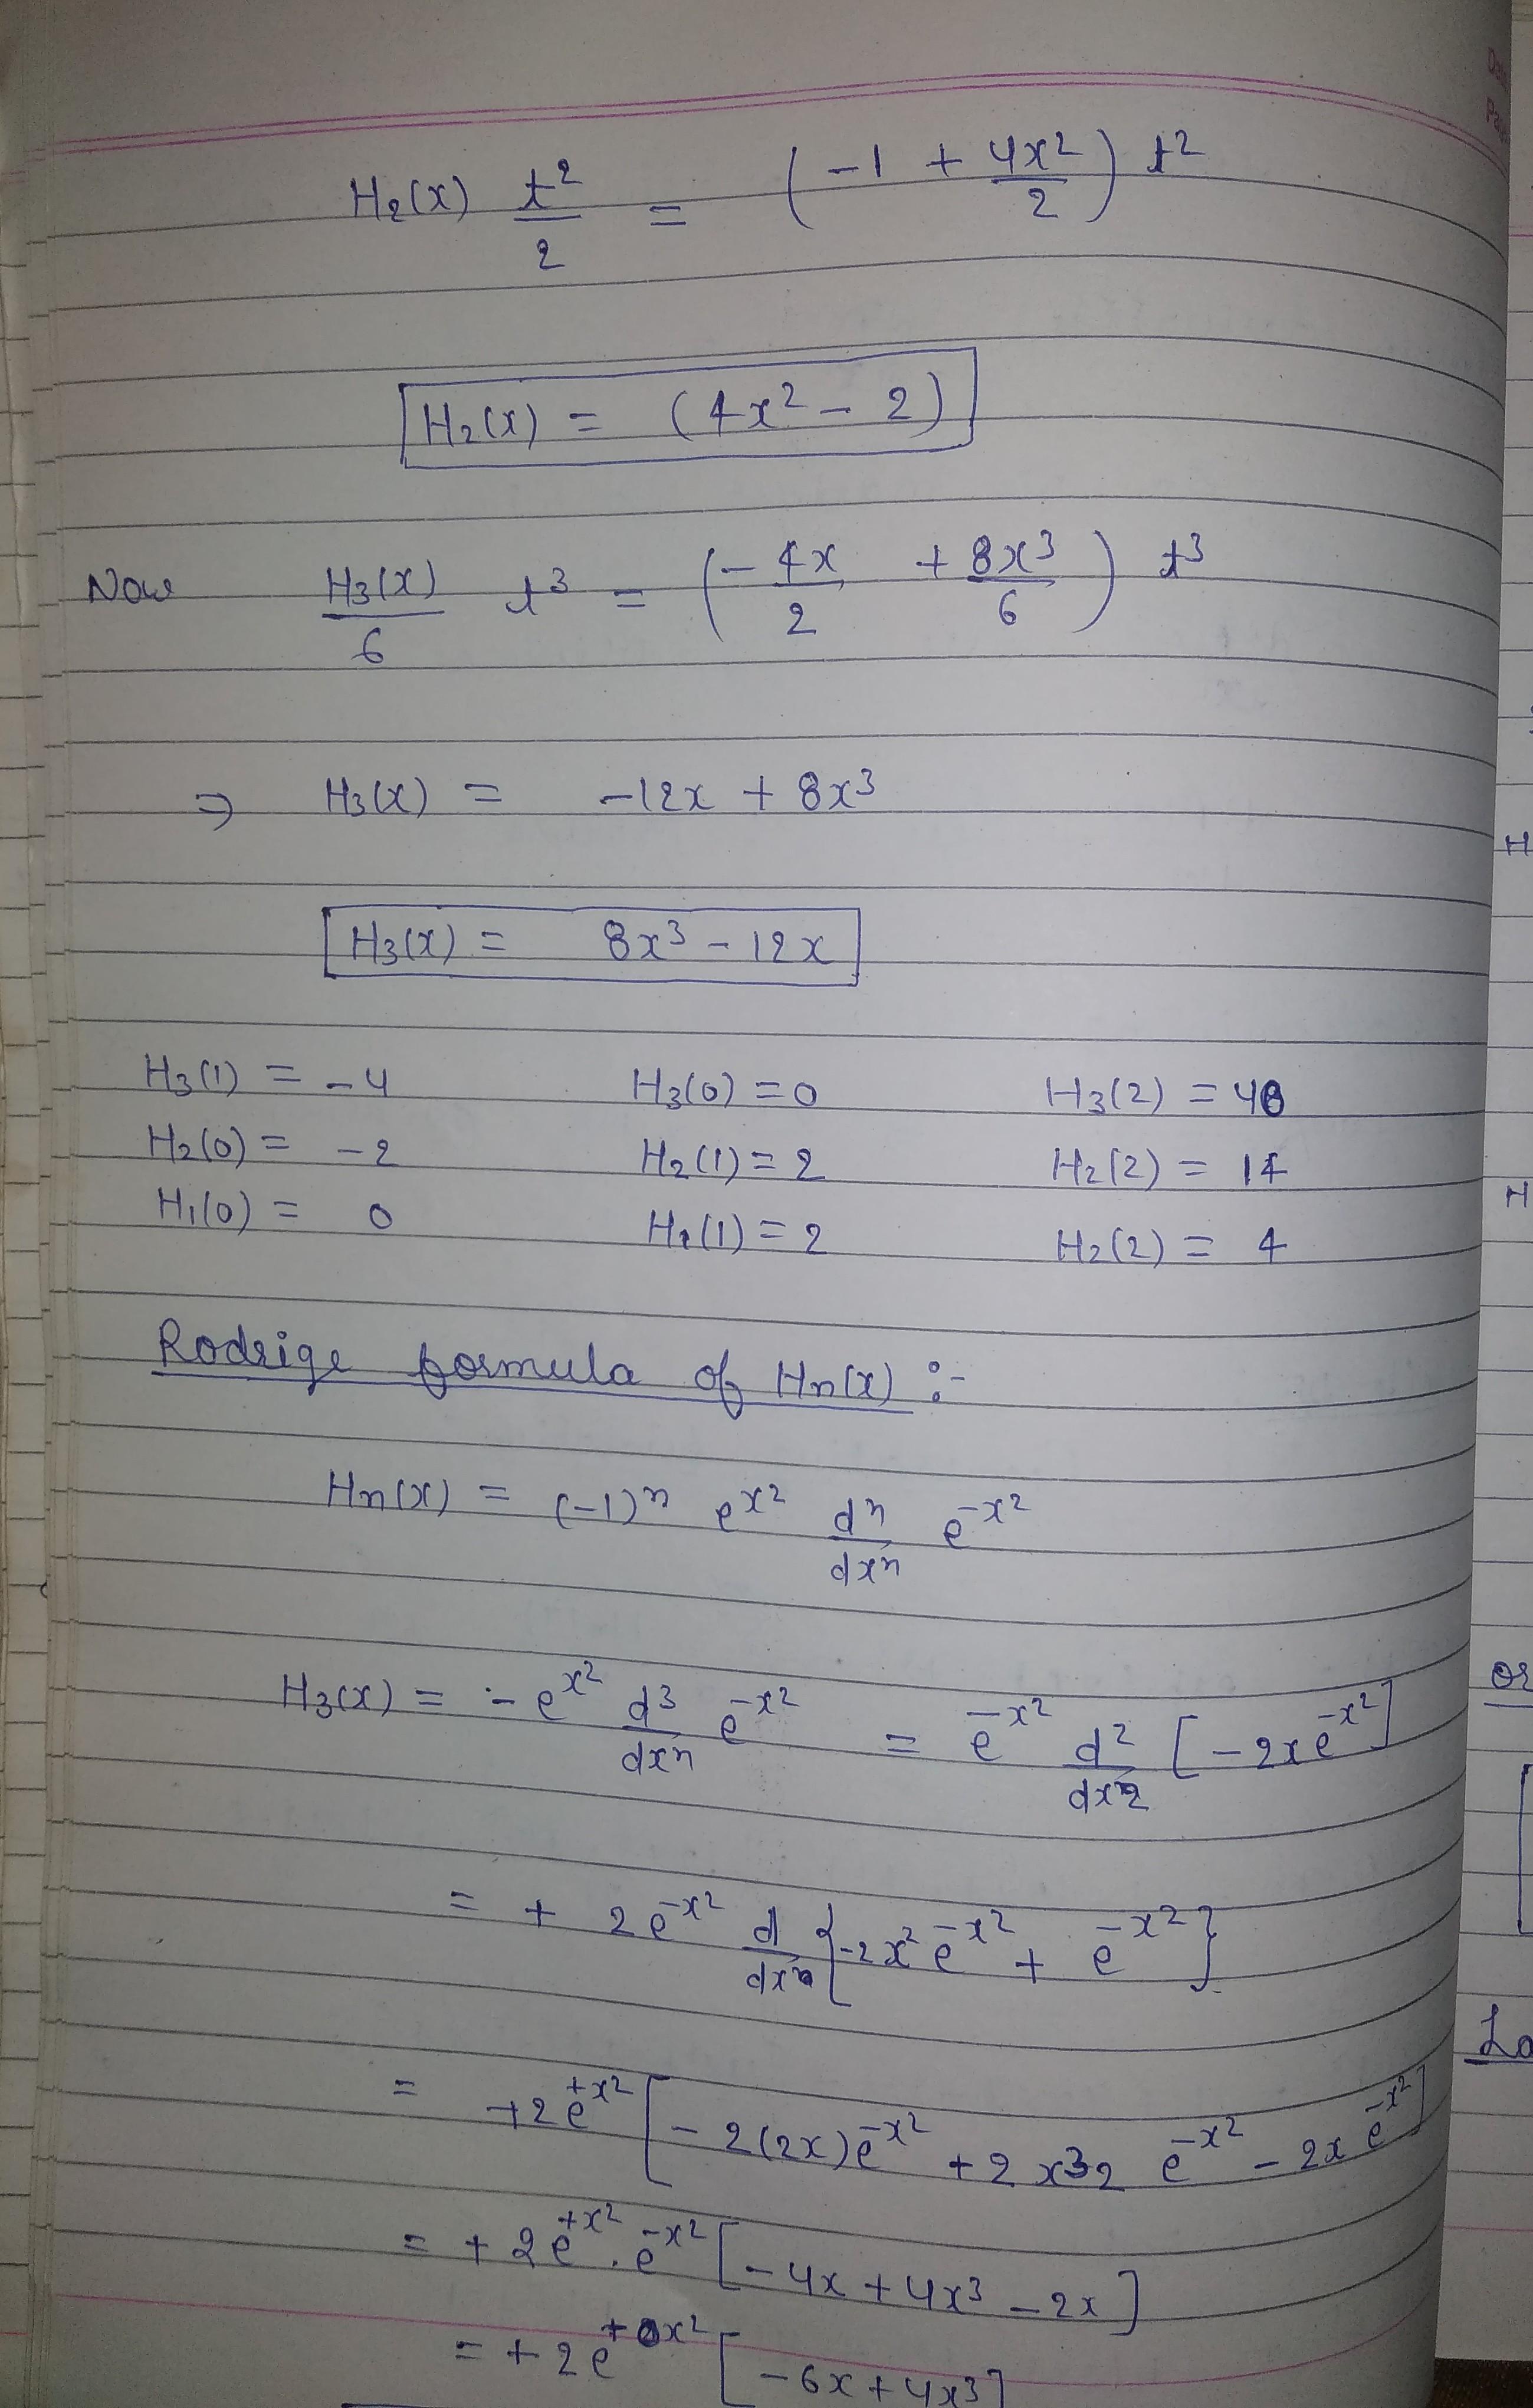 H₂(x) t²/2 = (-1 + 4x²/2) t²
H₂(x) = (4x² - 2)
Now H₃(x)/6 t³ = (- 4x/2 + 8x³/6) t³
⇒ H₃(x) = -12x + 8x³
H₃(x) = 8x³ - 12x
H₃(1) = -4 H₃(0) = 0 H₃(2) = 40
H₂(0) = -2 H₂(1) = 2 H₂(2) = 14
H₁(0) = 0 H₁(1) = 2 H₂(2) = 4
Rodrige formula of Hn(x) :-
Hn(x) = (-1)ⁿ e^x² dⁿ/dxⁿ e^-x²
H₃(x) = - e^x² d³/dxⁿ e^-x² = e^-x² d²/dx² [-2x e^-x²]
= + 2e^-x² d/dx {-2x² e^-x² + e^-x²}
= +2e^+x² [- 2(2x)e^-x² + 2x³2 e^-x² - 2x e^-x²]
= + 2e^+x² . e^-x² [-4x + 4x³ - 2x]
= + 2e^+0x² [-6x + 4x³]
H
H
or
La